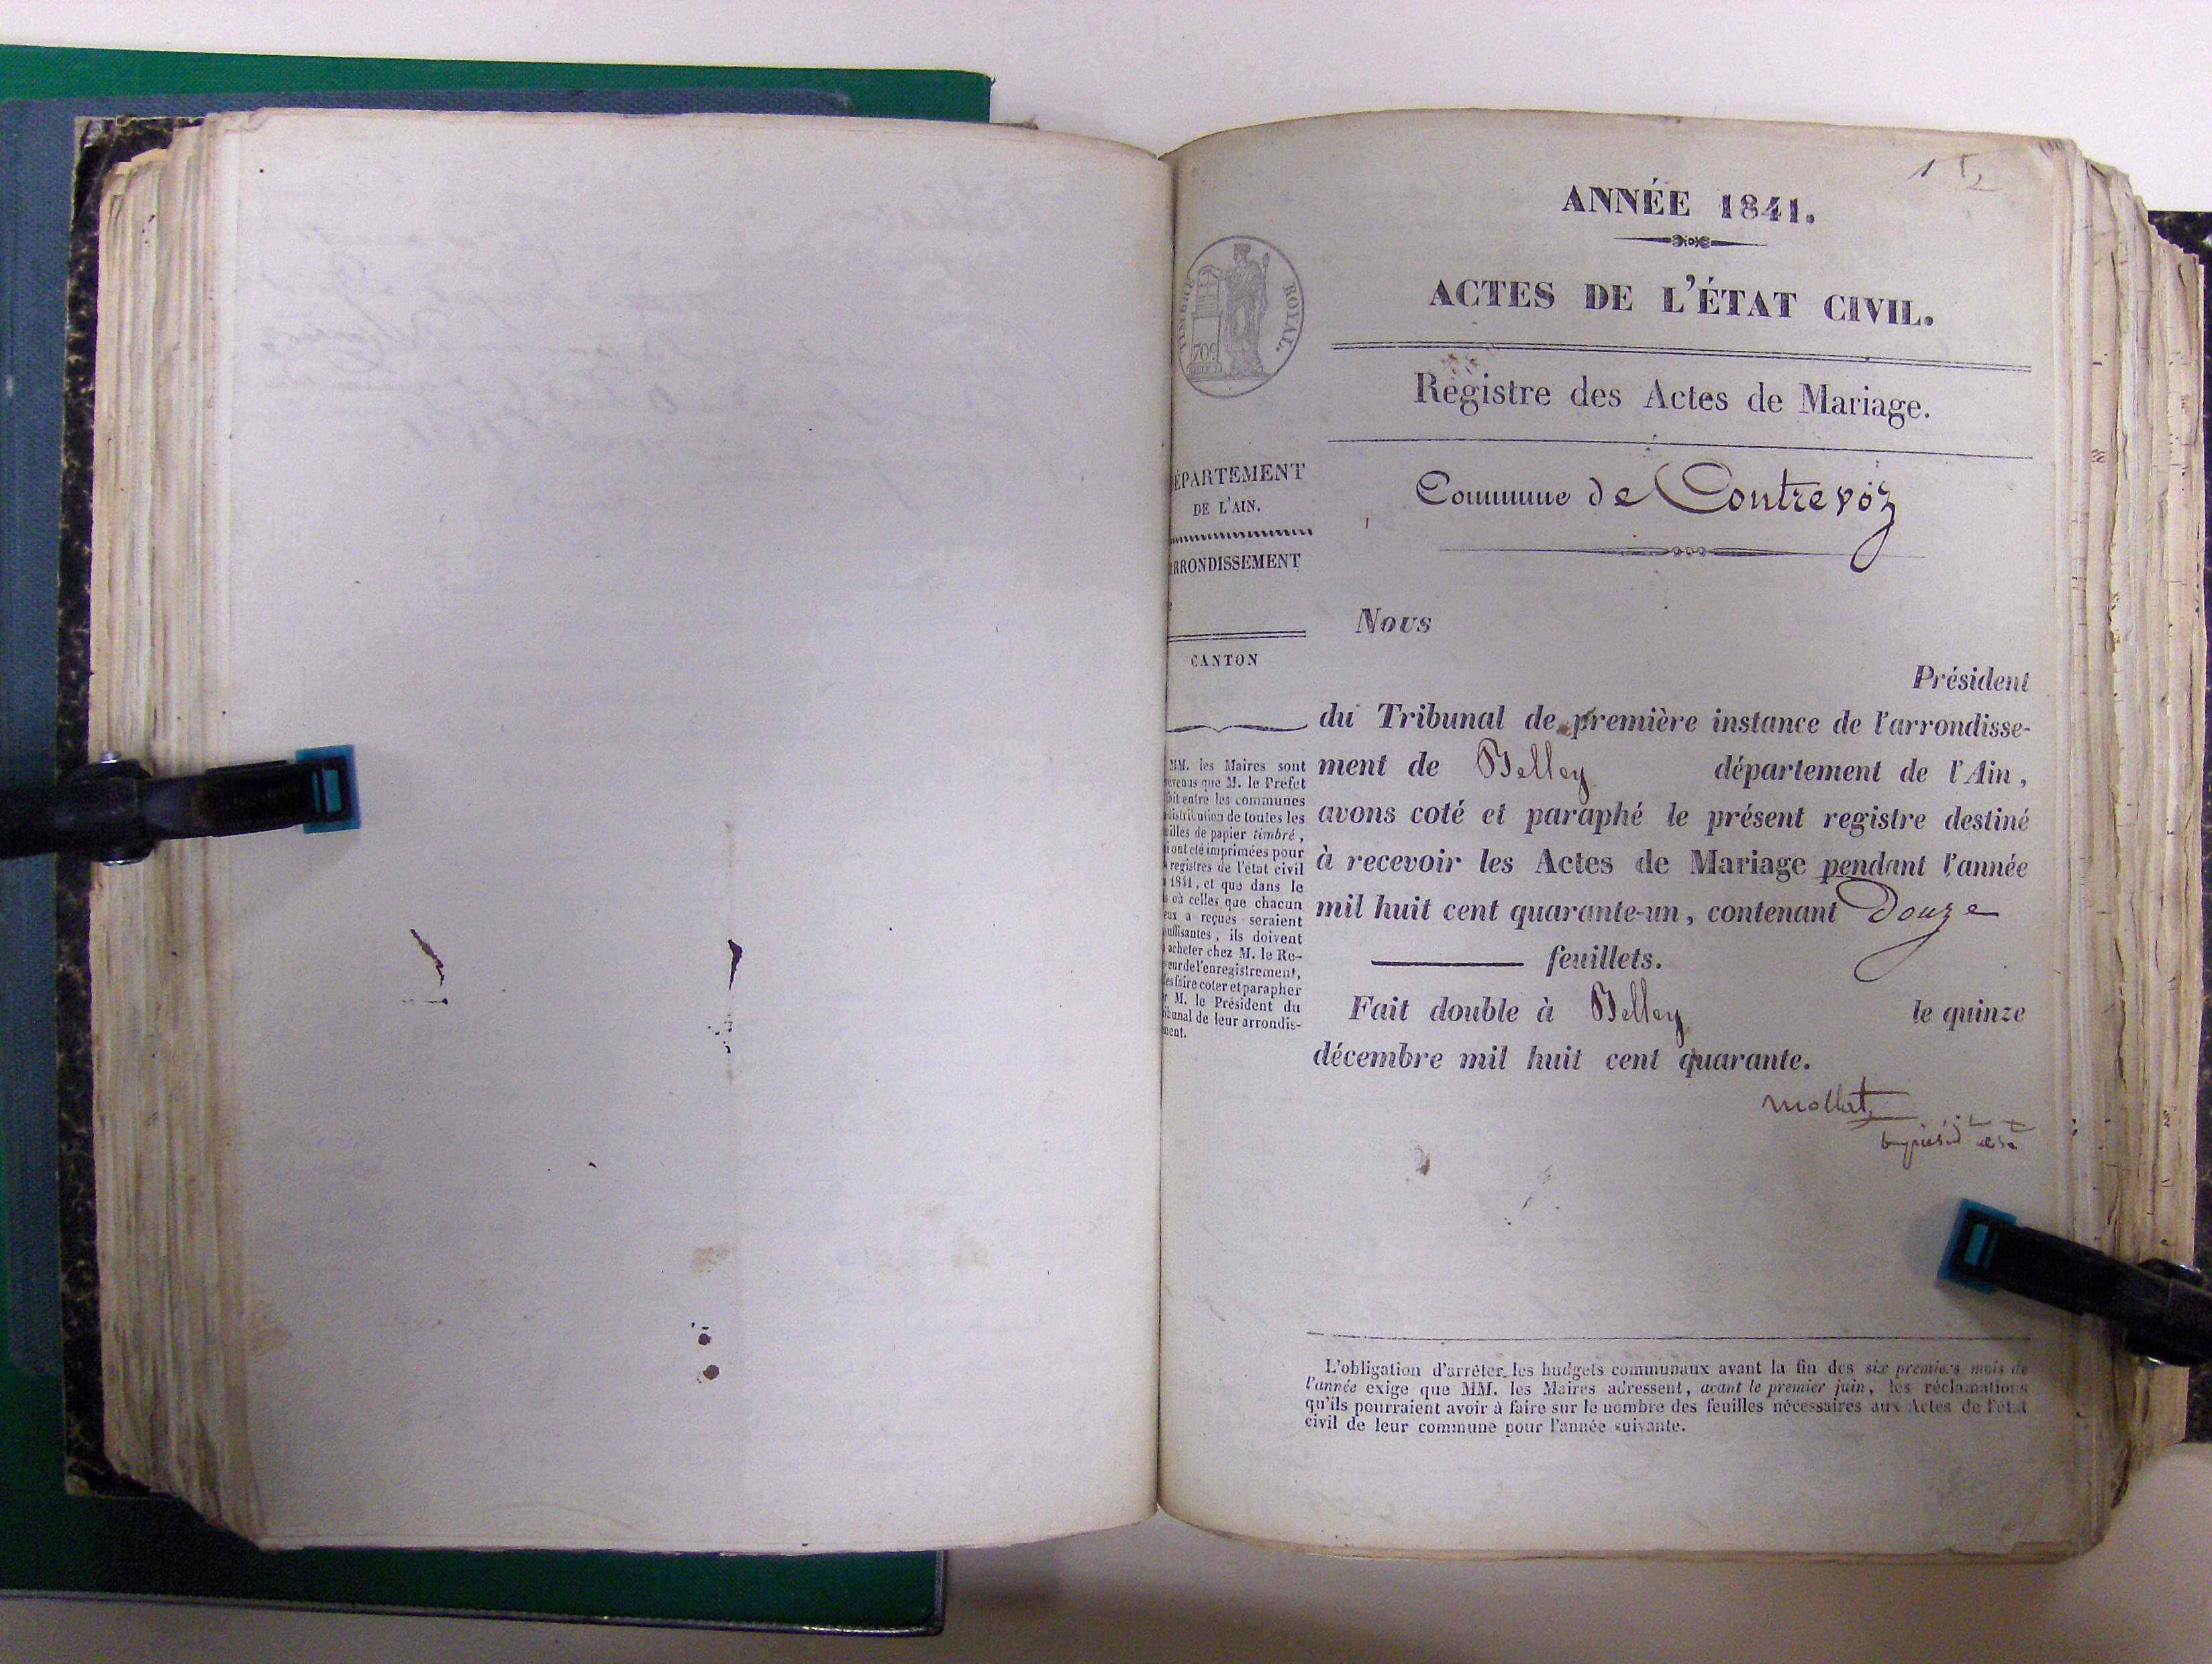 1
ANNÉE 1841.
ACTES DE L'ÉTAT CIVIL.
TIMBRE ROYAL.
70c
Registre des Actes de Mariage.
Commune de Contrevoz
ÉPARTEMENT
DE L'AIN.
RRONDISSEMENT
CANTON
Nous
Président
du Tribunal de première instance de l'arrondisse-
ment de Belley département de l'Ain,
avons coté et paraphé le présent registre destiné
à recevoir les Actes de Mariage pendant l'année
mil huit cent quarante-un, contenant Douze
feuillets.
Fait double à Belley le quinze
décembre mil huit cent quarante.
Mollat
MM. les Maires sont
évenus que M. le Préfet
ait entre les communes
distribution de toutes les
uilles de papier timbré,
i ont été imprimées pour
registres de l'état civil
1841, et que dans le
s où celles que chacun
eux a reçues seraient
suffisantes, ils doivent
acheter chez M. le Re-
veur de l'enregistrement,
les faire coter et parapher
r M. le Président du
ibunal de leur arrondis-
ment.
L'obligation d'arrêter les budgets communaux avant la fin des six premiers mois de
l'année exige que MM. les Maires adressent, avant le premier juin, les réclamations
qu'ils pourraient avoir à faire sur le nombre des feuilles nécessaires aux Actes de l'état
civil de leur commune pour l'année suivante.